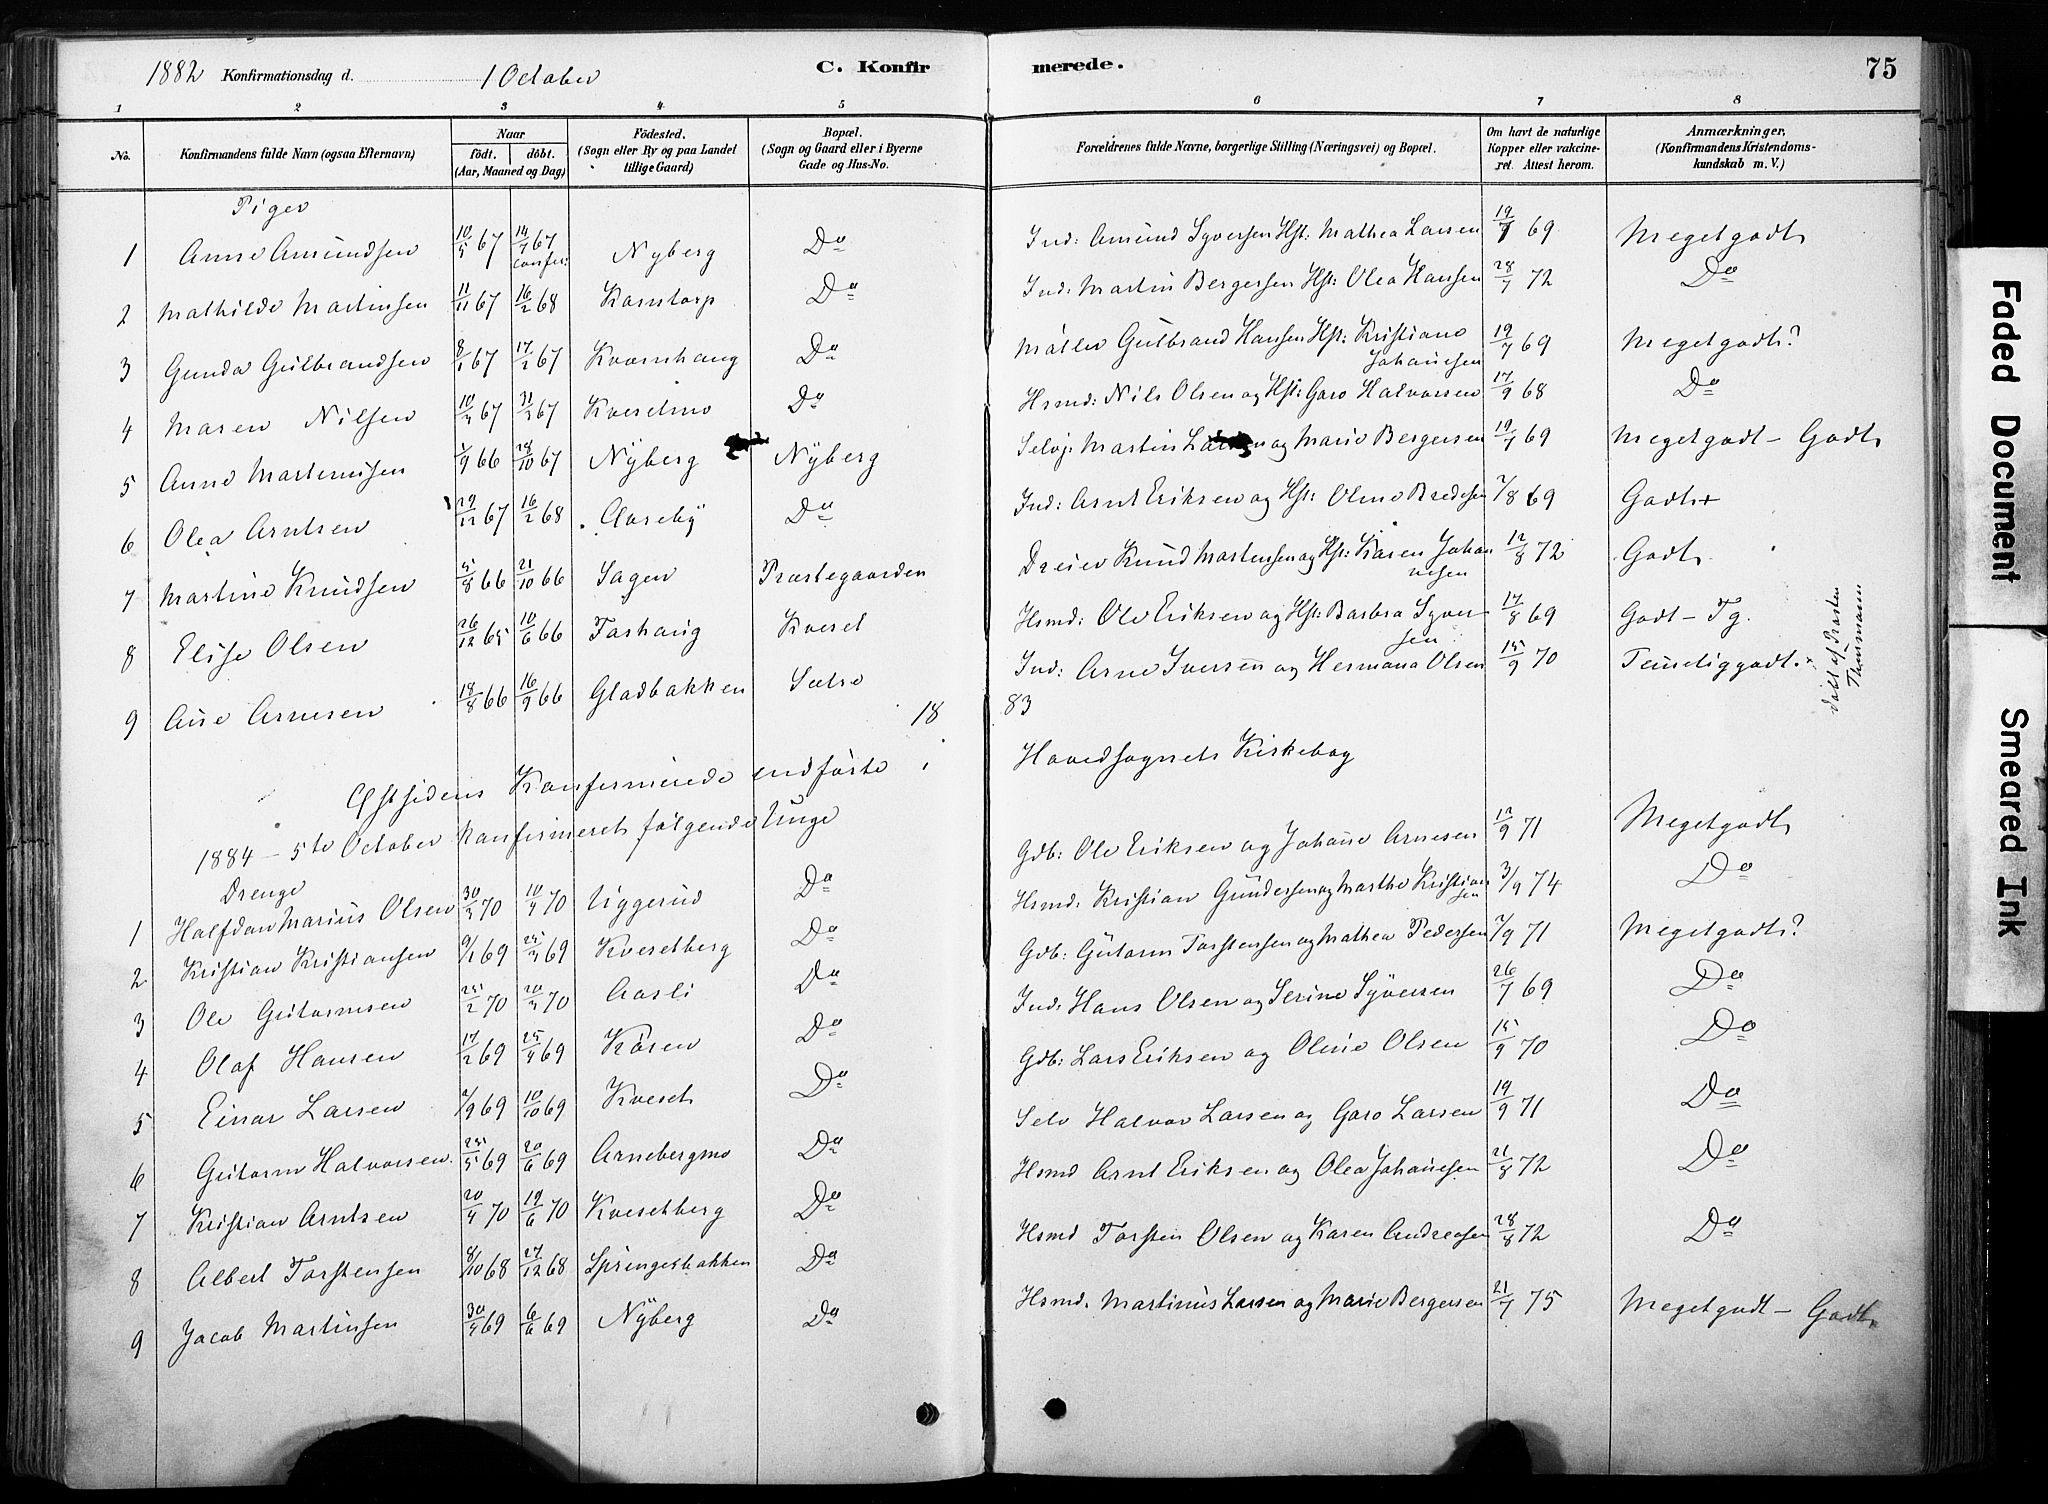 1882 Konfirmationsdag d. 1 October C. Konfirmerede. 75
1 2 3 4 5 6 7 8
No. Konfirmandens fulde Navn (ogsaa Efternavn) Naar födt. döbt. (Aar, Maaned og Dag) Födested. (Sogn eller By og paa Landet tillige Gaard) Bopæl. (Sogn og Gaard eller i Byerne Gade og Hus-No. Forældrenes fulde Navne, borgerlige Stilling (Næringsvei) og Bopæl. Om havt de naturlige Kopper eller vakcineret. Attest herom. Anmærkninger, (Konfirmandens Kristendomskundskab m. V.)
Piger
1 Anne Amundsen 10/5 67 14/7 67 Nyberg Do Ind: Amund Syversen Hst: Mathea Larsen 19/7 69 Megetgodt
2 Mathilde Martinsen 11/11 67 16/2 68 Korntorp Do Ind: Martin Bergersen Hst: Olea Hansen 28/7 72 Do
3 Gunda Gulbrandsen 8/1 67 17/2 67 Kvernhaug Do Möller Gulbrand Hansen Hst: Kristiane Johannesen 19/7 69 Megetgodt?
4 Maren Nilsen 10/3 67 31/3 67 Kvesetmo Do Hsmd: Nils Olsen og Hst: Goro Halvorsen 17/9 68 Do
5 Anne Martinusen 1/9 66 28/10 67 Nyberg Nyberg Selvj. Martin Larsen og Marie Bergersen 19/7 69 Megetgodt - Godt
6 Olea Arntsen 29/12 67 16/2 68 Claseby Do Ind: Arnt Eriksen og Hst: Oline Bredesen 7/8 69 Godt+
7 Martine Knudsen 5/8 66 21/10 66 Sagen Præstegaarden Dreier Knud Martensen og Hst: Karen Johannesen 12/8 72 Godt
8 Elise Olsen 26/12 65 10/6 66 Forhaug Kveset Hsmd: Ole Eriksen og Hst: Barbra Syversen 17/8 69 Godt - Tg.
9 Anne Arnesen 18/8 66 16/9 66 Gladbakken Sætre Ind: Arne Iversen og Hermana Olsen 15/9 70 Temeliggodt.
döbt af Præsten
1883
Østsidens Konfirmerede indförte i Hovedsognets Kirkebog
1884 - 5te October konfirmeret følgende Unge
Drenge
1 Halfdan Marius Olsen 30/3 70 10/4 70 Uggerud Do Gdb: Ole Eriksen og Johanne Arnesen 12/9 71 Megetgodt
2 Kristian Kristiansen 9/1 69 25/3 69 Kvesetberg Do Hsmd. Kristian Gundersen og Marthe Kristiansen 3/9 74 Do
3 Ole Gutormsen 25/2 70 20/3 70 Aasli Do Gdb: Gutorm Torstensen og Mathea Pedersen 7/9 71 Megetgodt?
4 Olaf Hansen 17/2 69 25/4 69 Kösen Do Ind. Hans Olsen og Serine Syversen 26/7 69 Do
5 Einar Larsen 2/9 69 10/10 69 Kveset Do Gdb: Lars Eriksen og Oline Olsen 15/9 70 Do
6 Gutorm Halvorsen 25/5 69 20/6 69 Arnebergmo Do Selv Halvor Larsen og Goro Larsen 19/9 71 Do
7 Kristian Arntsen 20/4 70 19/6 70 Kvesetberg Do Hsmd Arnt Eriksen og Olea Johannesen 21/8 72 Do
8 Albert Torstensen 8/10 68 27/12 68 Springerbakken Do Hsmd Torsten Olsen og Karen Andreasen 28/8 72 Do
9 Jacob Martinsen 30/4 69 6/6 69 Nyberg Do Hsmd. Martinus Larsen og Marie Bergersen 21/7 75 Megetgodt - Godt
Faded Document
Smeared Ink